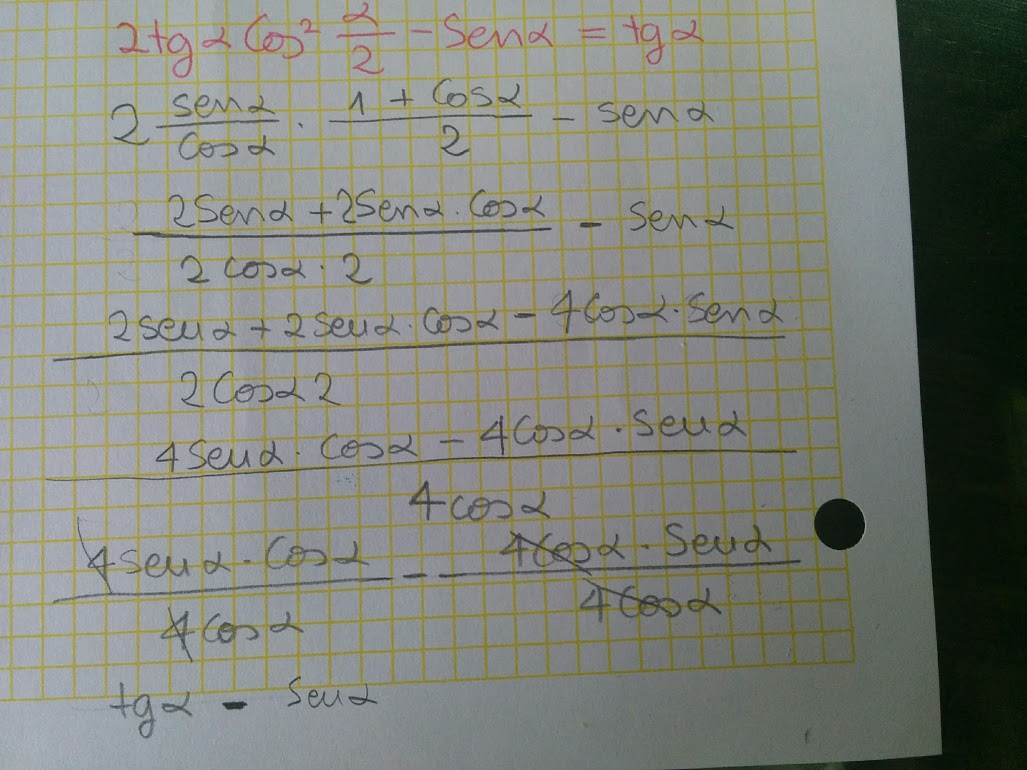 2tgα Cos² α/2 - Senα = tgα
2 senα/Cosα · 1 + Cosα/2 - senα
2Senα + 2Senα · Cosα/2 cosα · 2 - senα
2senα + 2senα · Cosα - 4Cosα · Senα/2Cosα2
4Senα · Cosα - 4Cosα · Senα/4cosα
4senα · Cosα/4Cosα - 4Cosα · Senα/4Cosα
tgα - Senα